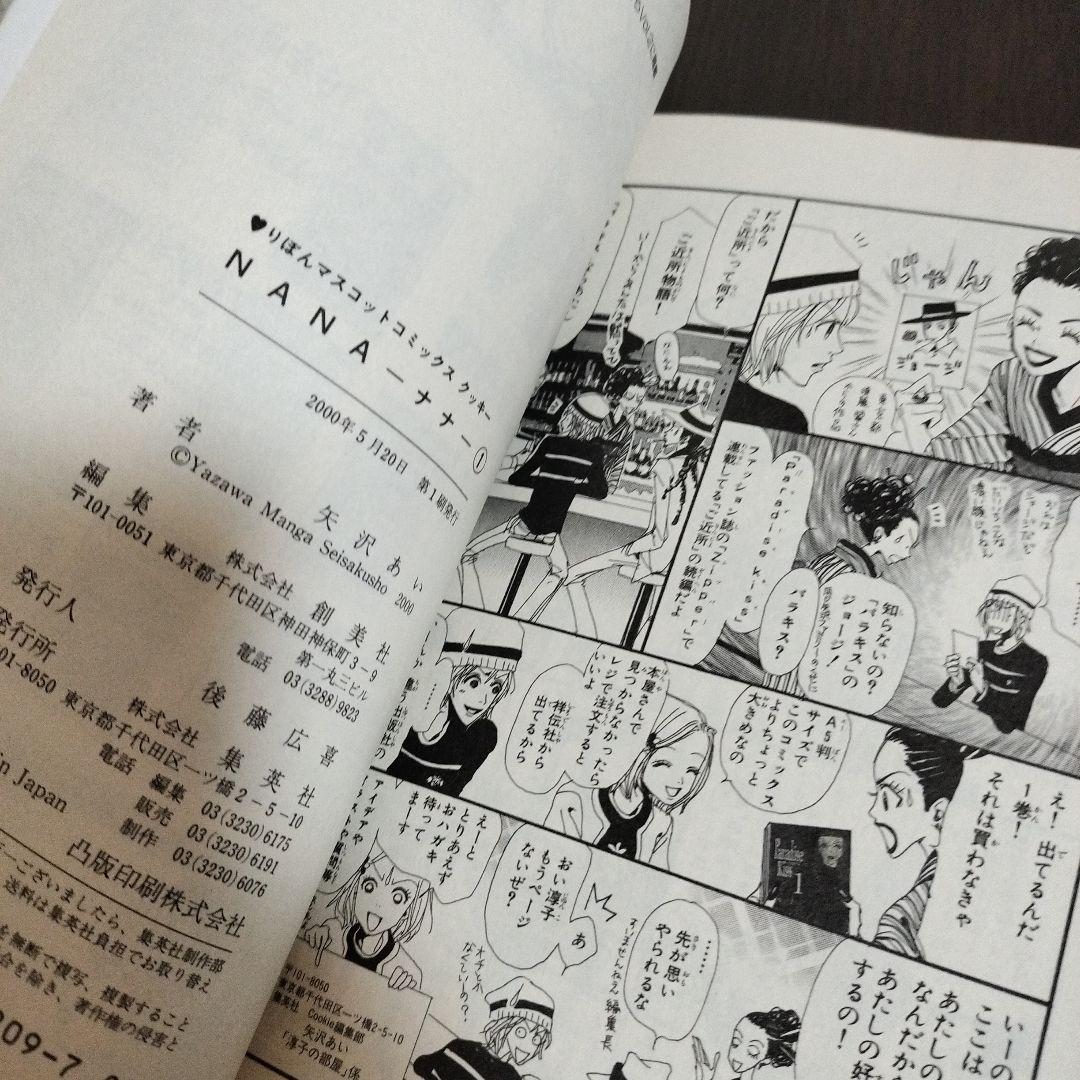 ♥りぼんマスコットコミックス クッキー
NANA―ナナ―①
2000年5月20日 第1刷発行
著者 矢沢あい
©Yazawa Manga Seisakusho 2000
編集 株式会社 創美社
〒101-0051 東京都千代田区神田神保町3-9
第一丸三ビル
電話 03(3288)9823
発行人 後藤広喜
発行所 株式会社 集英社
01-8050 東京都千代田区一ツ橋2-5-10
電話 編集 03(3230)6175
販売 03(3230)6191
制作 03(3230)6076
in Japan
凸版印刷株式会社
ございましたら、集英社制作部
送料は集英社負担でお取り替え
を無断で複写、複製すること
合を除き、著作権の侵害と
09-7
だから
「ご近所」って何?
ご近所物語!
じゃん
ジョージ
知らないの?
「パラキス」の
ジョージ!
パラキス?
「Paradise kiss」
ファッション誌の「Zipper」で
連載してる「ご近所」の続編だよ
A5判
サイズで
このコミックス
よりちょっと
大きめなの
本屋さんで
見つからなかったら
レジで注文すると
いいよ
祥伝社から
出てるから
え!出てるんだ
1巻!
それは買わなきゃ
Paradise
Kiss 1
えーと
とりあえず
おハガキ
待って
まーす
アイデアや
おい淳子
もうページ
ないぜ?
あ
……
先が思い
やられるな
すいませんねえ編集長
オチとか
なくていーの?
いーの
ここは
あたしの
なんだから
あたしの好
するの!
〒101-8050
東京都千代田区一ツ橋2-5-10
集英社 Cookie編集部
矢沢あい
「淳子の部屋」係